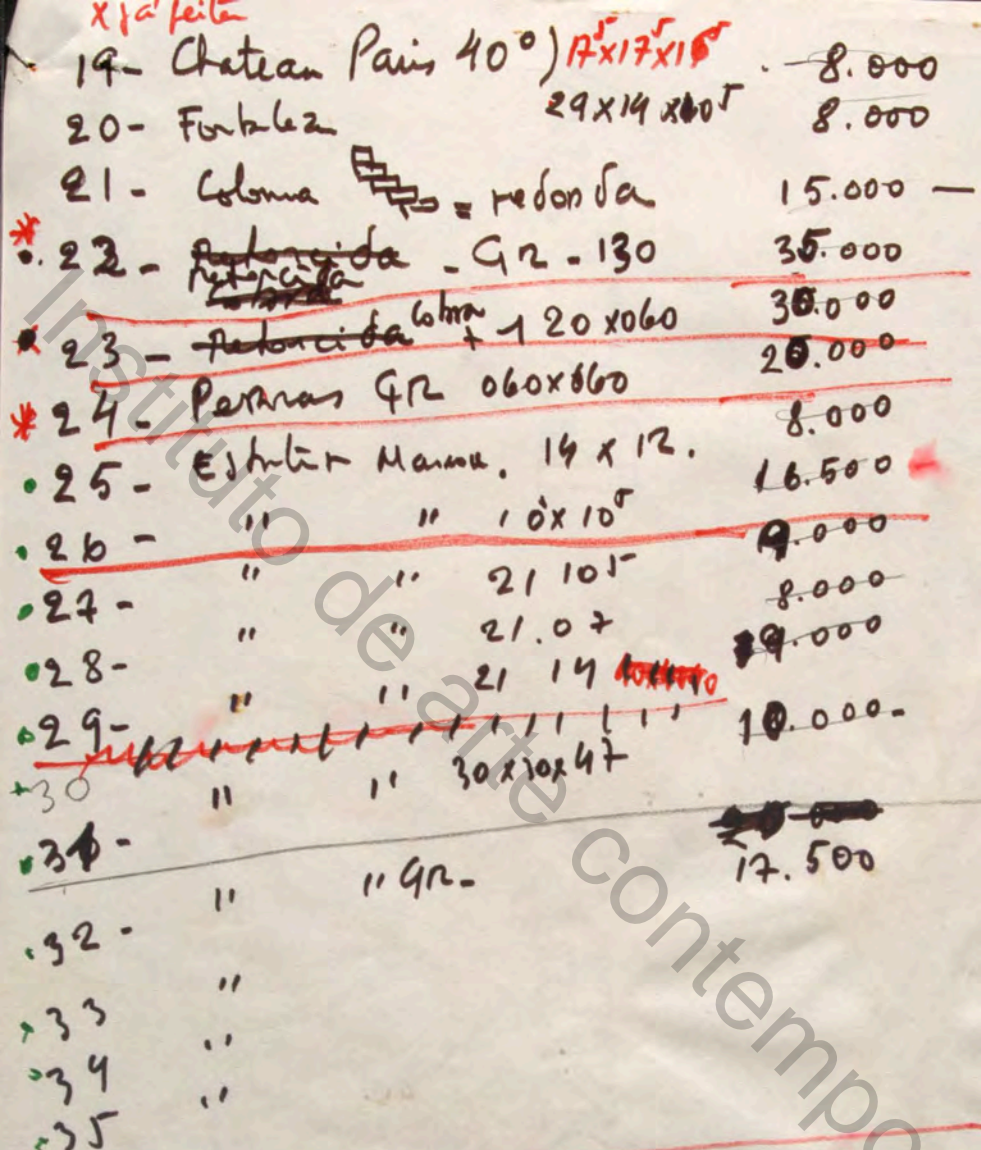 x já feita
19- Chateau Paris 40°) 17⁵x17⁵x16⁵ 8.000
20- Fortaleza 29x14x10⁵ 8.000
21- Coloma = redonda 15.000 —
* 22- Retorcida - GR - 130 35.000
* 23- Retorcida Cobra + 120 x060 30.000
* 24- Pernas GR 060x060 20.000
25- Marrom. 14 x 12. 8.000
26- " " 10x10⁵ 16.500
27- " " 21 10⁵ 9.000
28- " " 21.07 8.000
29- " " 21 14 9.000
30 " " 30x30x47 10.000-
31- " " GR- 17.500
32- "
33 "
34 "
35
Instituto de arte contempo